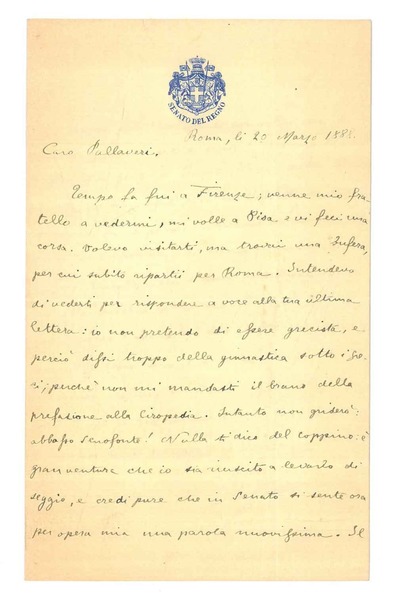 SENATO DEL REGNO
Roma, li 20 Marzo 188
Caro Pallaveri.
Tempo fa fui a Firenze; venne mio fra
tello a vedermi, mi volle a Pisa e vi feci una
corsa. Volevo visitarti, ma trovai una
per cui subito ripartii per Roma. Intendevo
di vederti per rispondere a voce alla tua ultima
lettera: io non pretendo di essere grecista, e
perciò dissi troppo della ginnastica sotto i Gre-
ci; purché non mi mandasti il brano della
prefazione alla Ciropedia. Intanto non griderò:
abbasso Senofonte! Nulla ti dico del Coppino: è
gran ventura che io sia riuscito a levarlo di
seggio, e credi pure che in Senato si sente ora
per opera mia una parola nuovissima. Il